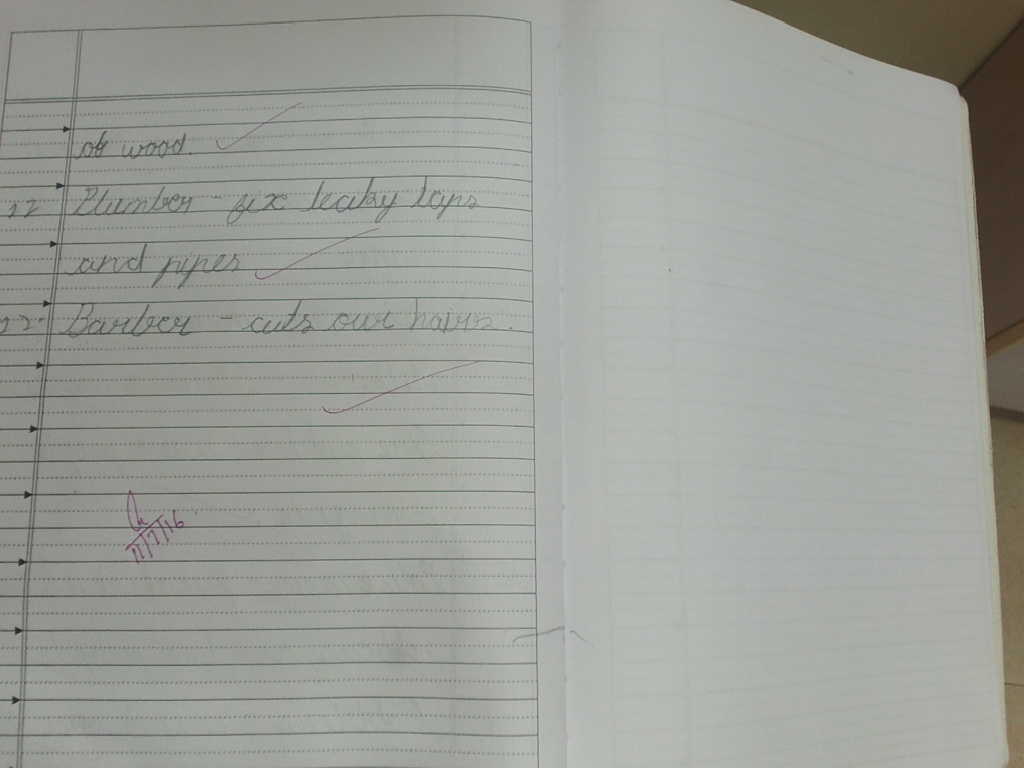 of wood.
22 Plumber - fix leaky taps
and pipes
22. Barber - cuts our hairs.
11/7/16